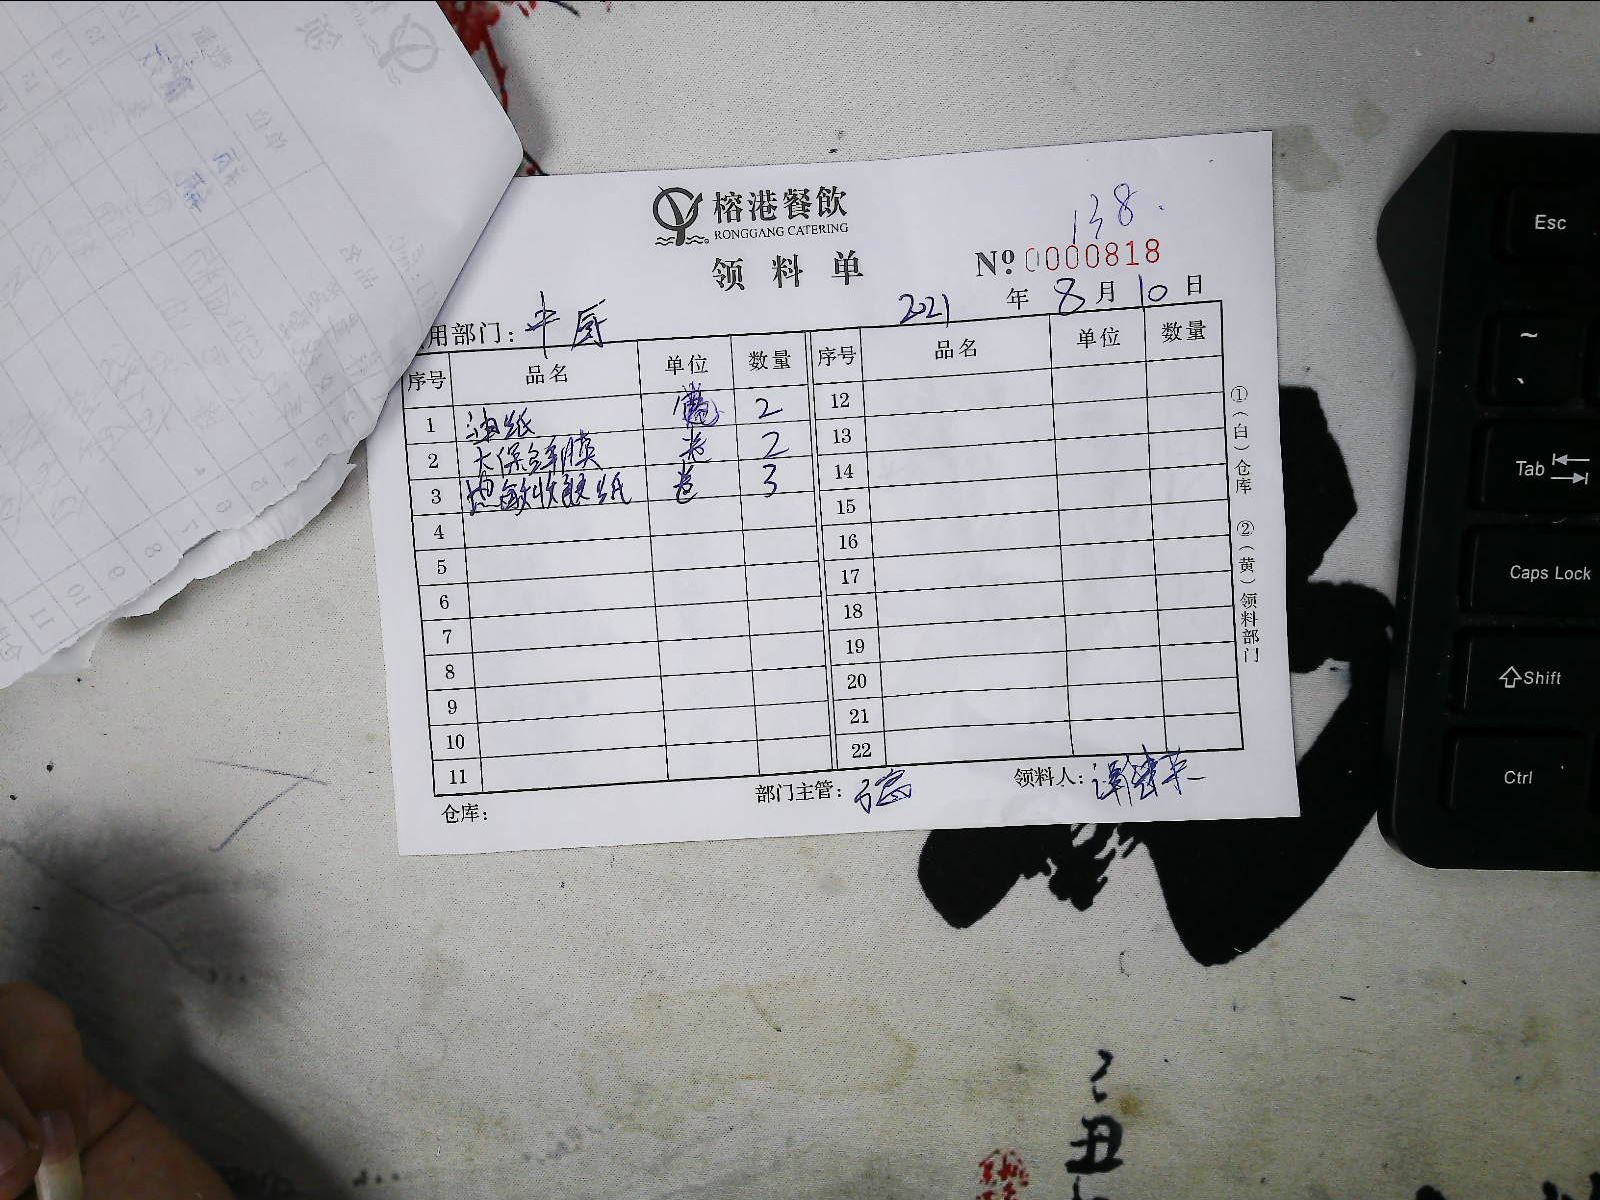 榕港餐飲
RONGGANG CATERING
138.
领料单
Nº 0000818
用部门：中厨
2021年8月10日
序号 品名 单位 数量 序号 品名 单位 数量
1 油纸 2 12
2 大保鲜膜 卷 2 13
3 热敏收银纸 卷 3 14
4 15
5 16
6 17
7 18
8 19
9 20
10 21
11 22
仓库： 部门主管： 领料人：
①（白）仓库 ②（黄）领料部门
Esc
~
、
Tab
Caps Lock
Shift
Ctrl
己
丑